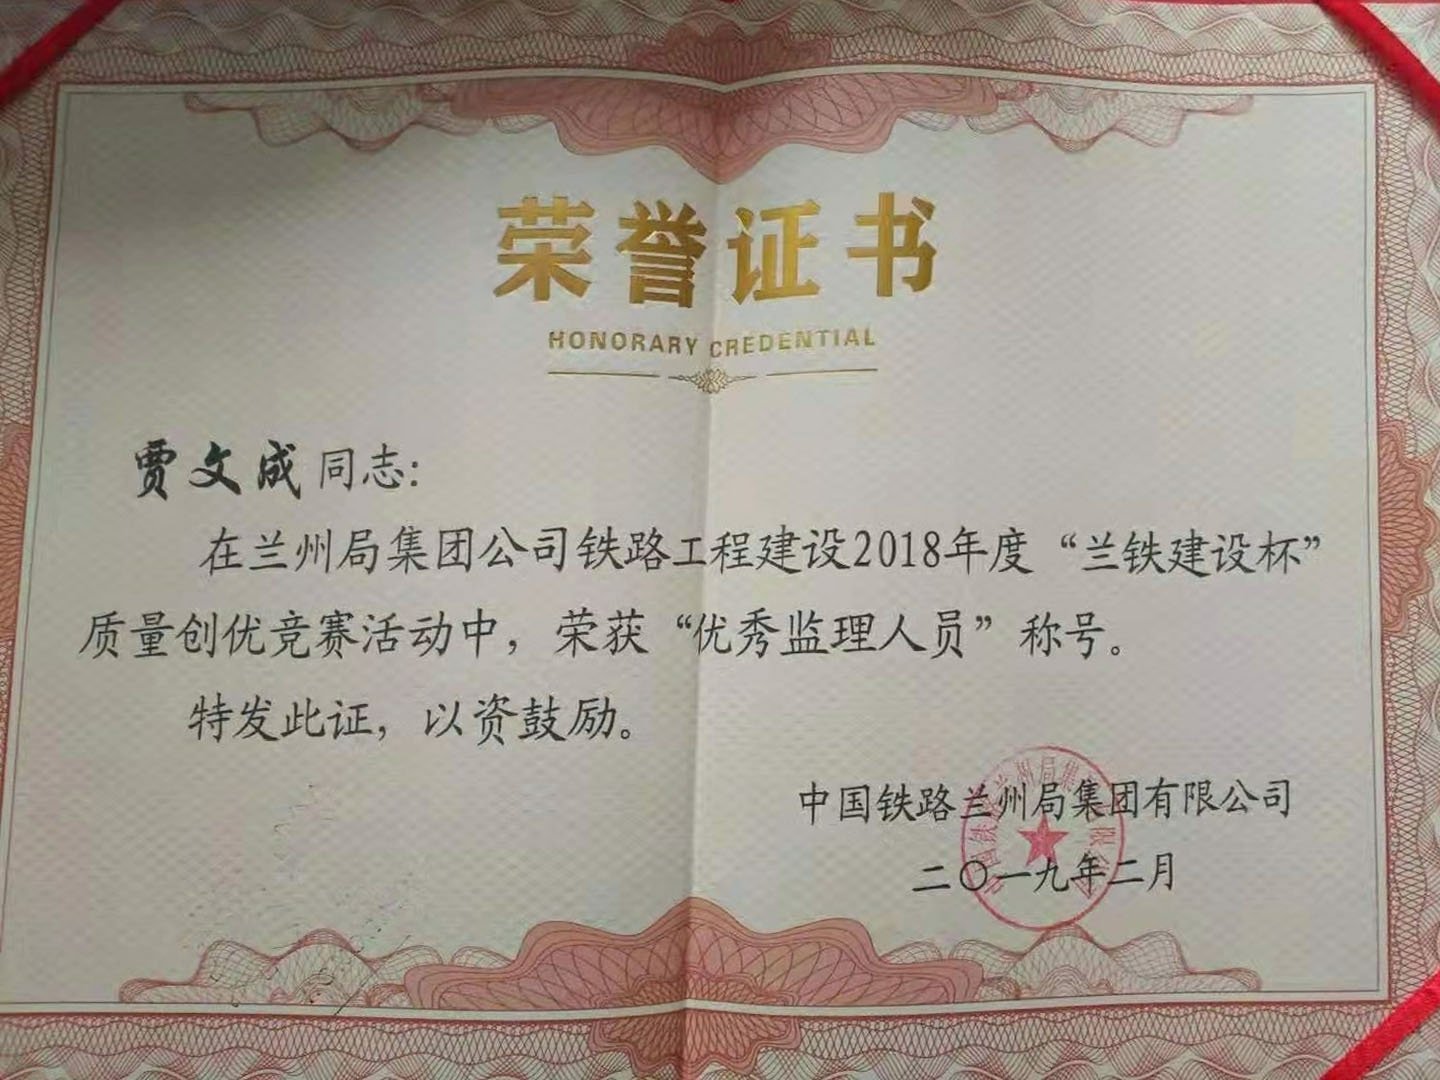 荣誉证书
HONORARY CREDENTIAL
贾文成同志:
在兰州局集团公司铁路工程建设2018年度“兰铁建设杯”
质量创优竞赛活动中，荣获“优秀监理人员”称号。
特发此证，以资鼓励。
中国铁路兰州局集团有限公司
二〇一九年二月